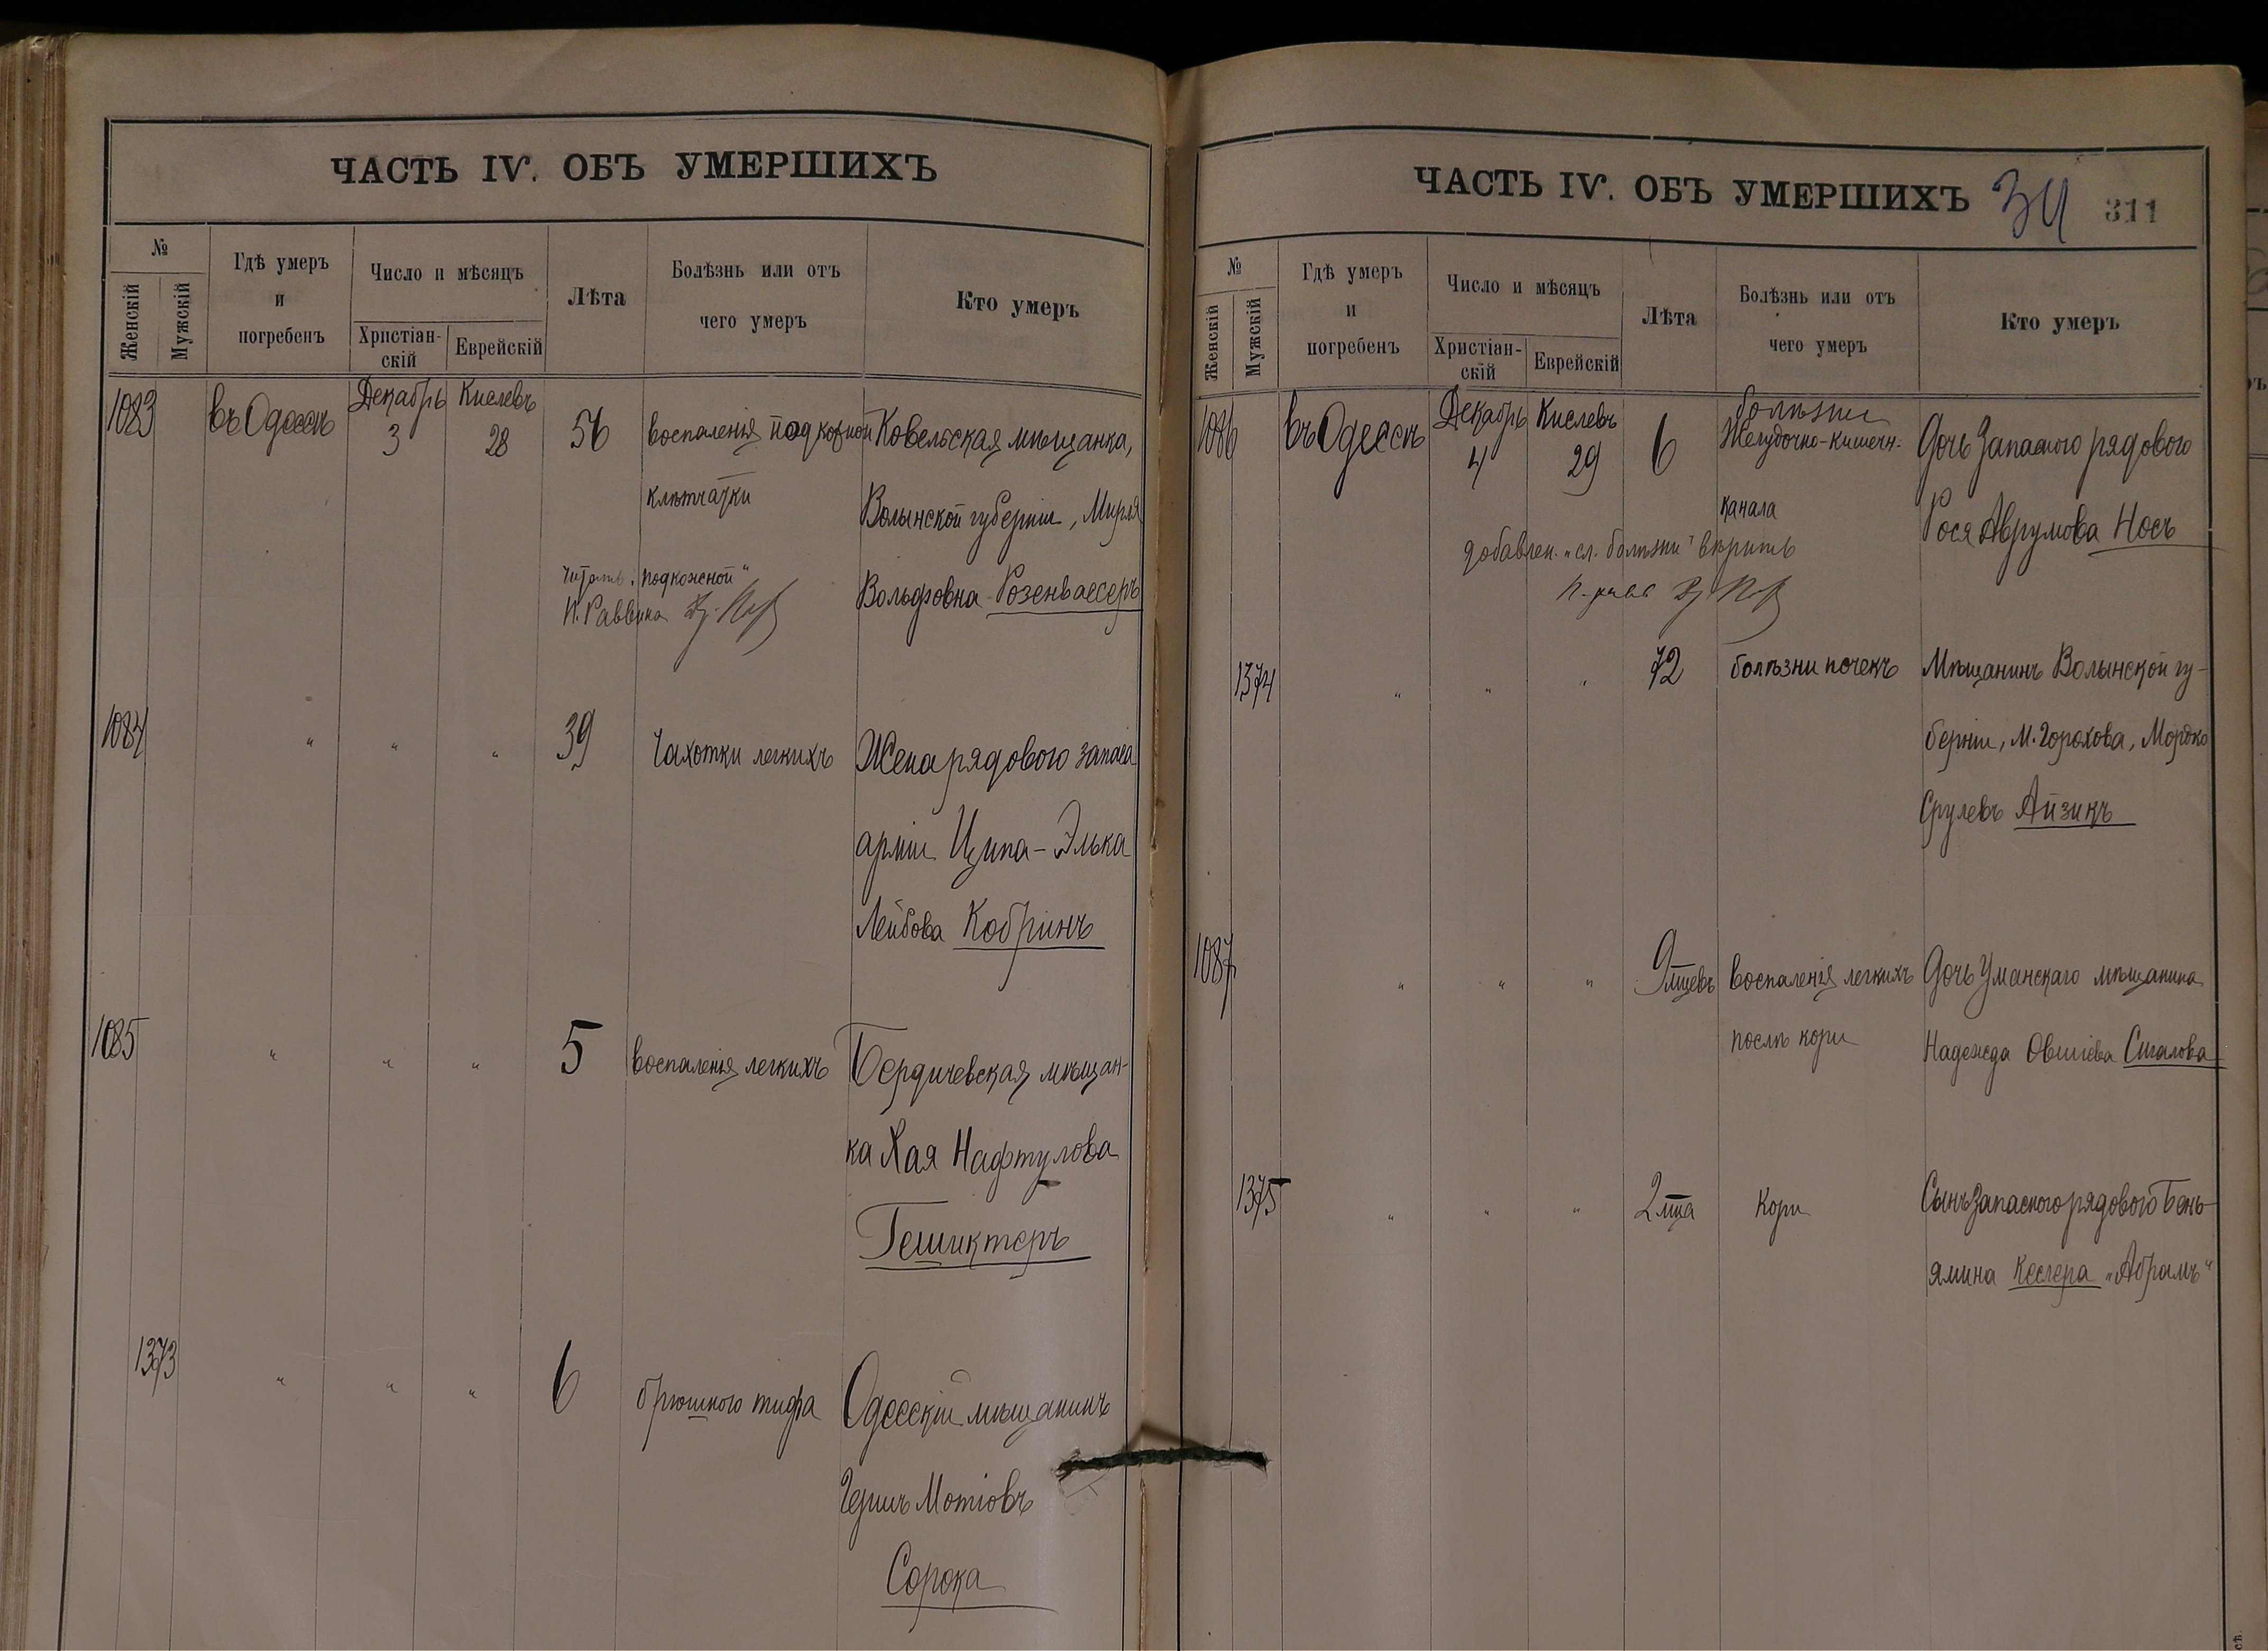 ЧАСТЬ IV. ОБЪ УМЕРШИХЪ
№
Женскій
Мужскій
Гдѣ умеръ
и
погребенъ
Число и мѣсяцъ
Христіан-
скій
Еврейскій
Лѣта
Болѣзнь или отъ
чего умеръ
Кто умеръ
1083 въ Одессѣ Декабрь 3 Кислевъ 28 56 воспаленія подкожной Ковельская мѣщанка,
клѣтчатки Волынской губерніи, Мирля
Читать: „подкожной“ Вольфовна Розенвассеръ
И. Раввина
1084 " " " 39 Чахотки легкихъ Жена рядового запаса
арміи Ципа-Элька
Лейбова Кобринъ
1085 " " " 5 воспаленія легкихъ Бердичевская мѣщан-
ка Хая Нафтулова
Гешиктеръ
1373 " " " 6 брюшного тифа Одесскій мѣщанинъ
Гершъ Мотіовъ
Сорока
ЧАСТЬ IV. ОБЪ УМЕРШИХЪ 311
№
Женскій
Мужскій
Гдѣ умеръ
и
погребенъ
Число и мѣсяцъ
Христіан-
скій
Еврейскій
Лѣта
Болѣзнь или отъ
чего умеръ
Кто умеръ
болѣзни
1086 въ Одессѣ Декабрь 4 Кислевъ 29 6 Желудочно-кишечн. Дочь Запасного рядового
канала Рося Аврумова Носъ
добавлен. „сл. болѣзни“ вѣрить
1374 " " " 72 болѣзни почекъ Мѣщанинъ Волынской гу-
берніи, М. Горохова, Мордко
Срулевъ Айзикъ
1087 " " " 9 мцевъ воспаленія легкихъ Дочь Уманскаго мѣщанина
послѣ кори Надежда Овшіева Сигалова
1375 " " " 2 мца Кори Сынъ запасного рядового Бень-
ямина Кеслера „Абрамъ“